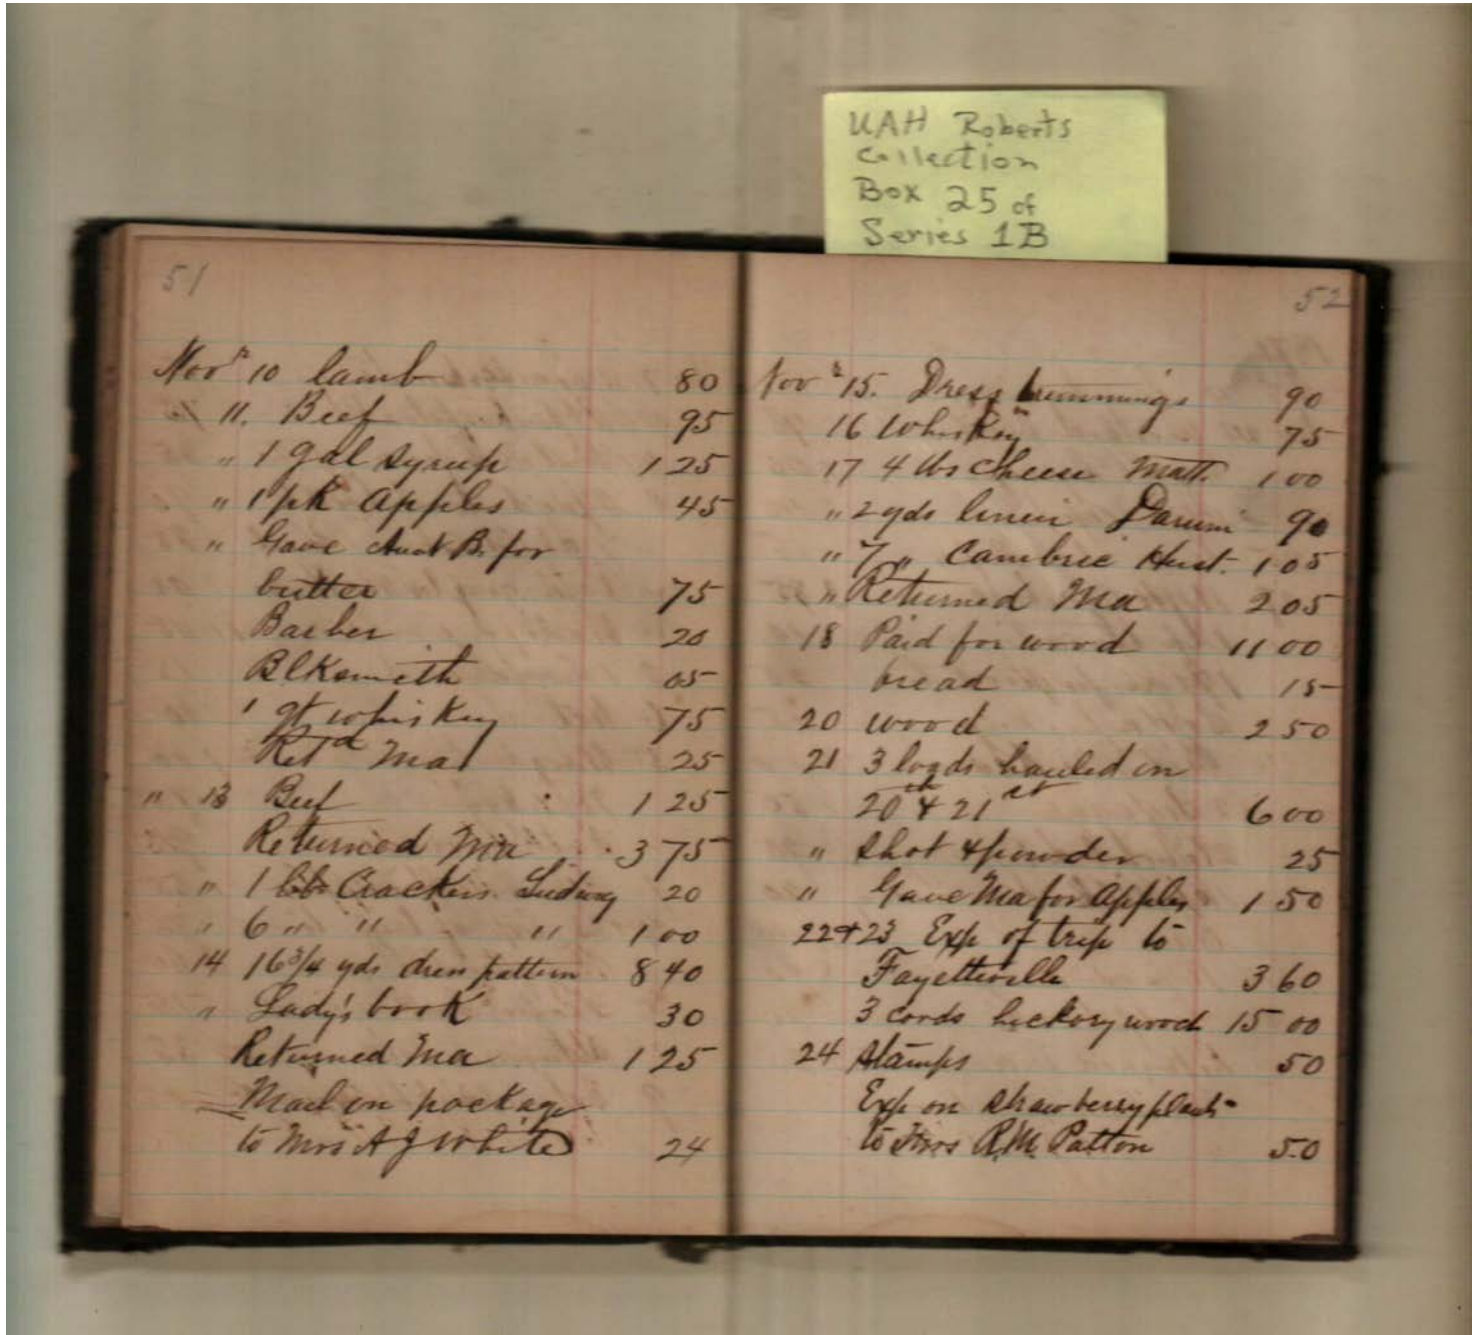 UAH Roberts
Collection
Box 25 of
Series 1B
51
Novr 10 lamb 80
" 11. Beef 95
" 1 gal syrup 1 25
" 1 pk Apples 45
" Gave Aunt B. for
butter 75
Barber 20
Blksmith 05
1 qt whiskey 75
Retd Ma 25
" 13 Beef 1 25
Returned Ma 3 75
" 1 lb Crackers 20
" 6 " " " 1 00
14 16 3/4 yds dress pattern 8 40
" Lady's book 30
Returned Ma 1 25
on package
to Mrs A J White 24
52
Novr 15. Dress trimmings 90
16 Whiskey 75
17 4 lbs Cheese Matt. 1 00
" 2 yds linen 90
" 7 " Cambric 1 05
" Returned Ma 2 05
18 Paid for wood 11 00
bread 15
20 wood 2 50
21 3 loads hauled on
20th & 21st 6 00
" shot & powder 25
" Gave Ma for Apples 1 50
22 & 23 Exp of trip to
Fayetteville 3 60
3 cords hickory wood 15 00
24 Stamps 50
Exp on strawberry plants
to Mrs R. M. Patton 50